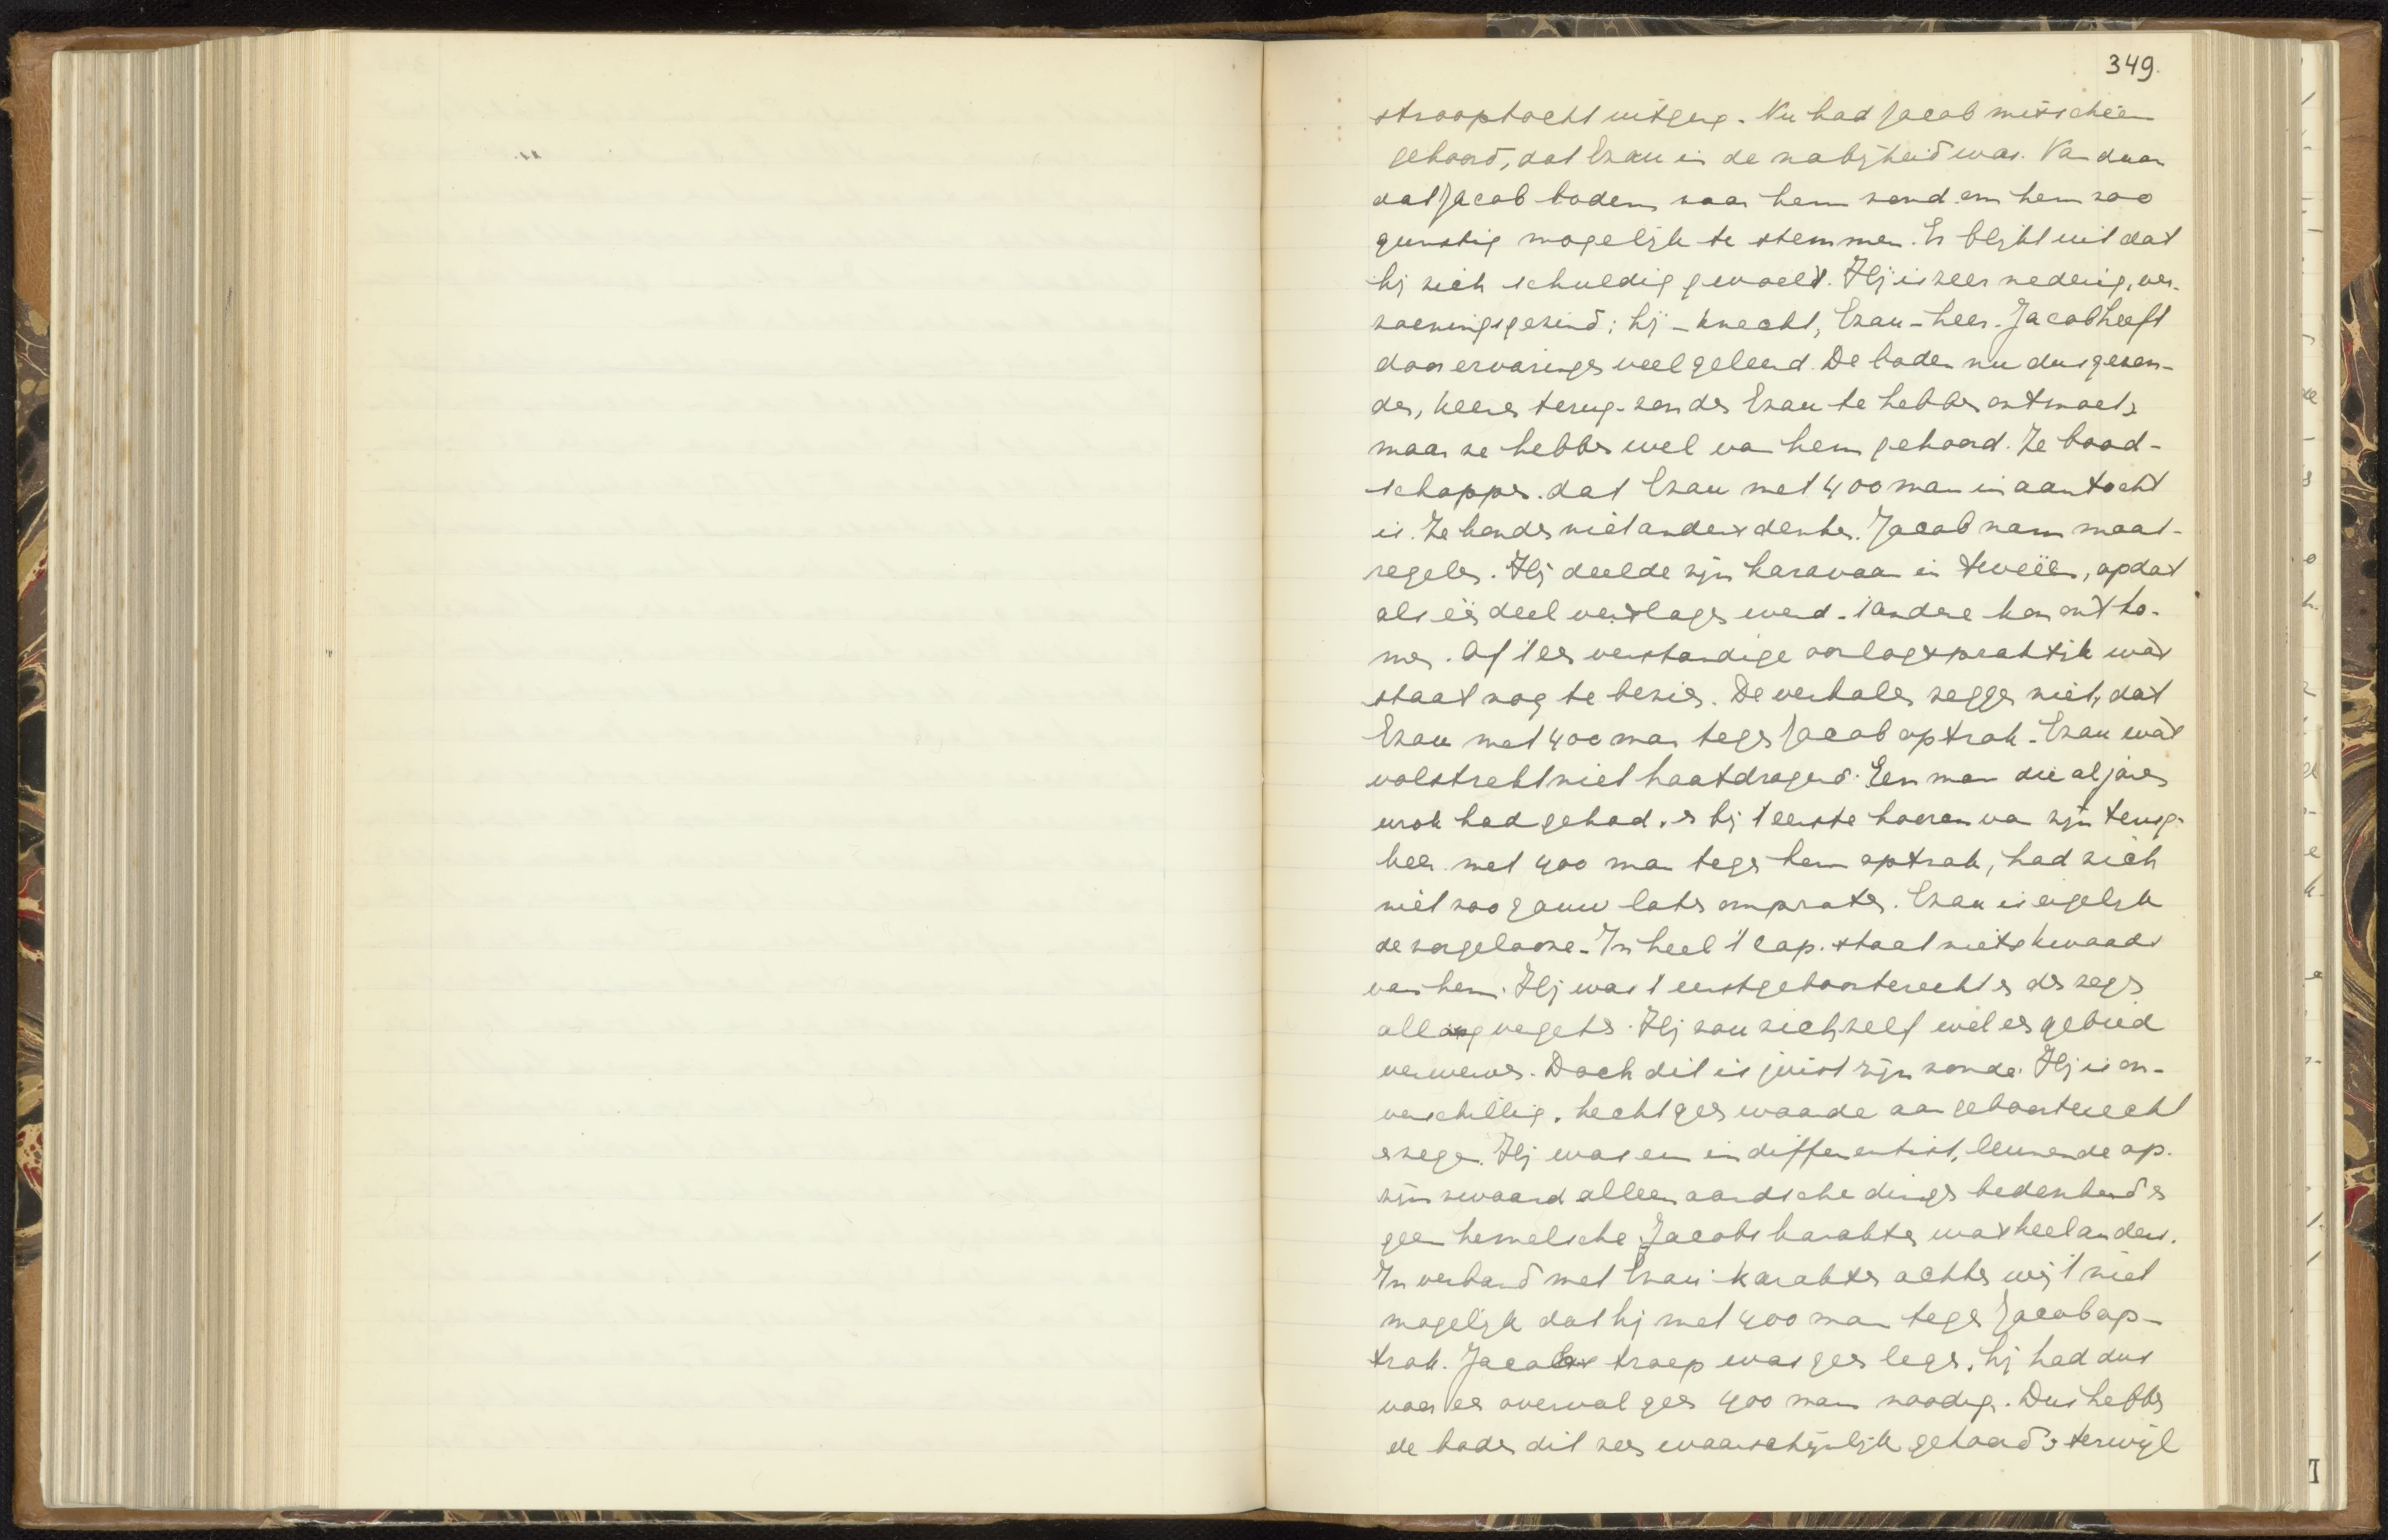 349.
strooptocht uitging. Nu had Jacob misschien
gehoord, dat Ezau in de nabijheid was. Vandaar
dat Jacob boden naar hem zond om hem zoo
gunstig mogelijk te stemmen. Er blijkt uit dat
hij zich schuldig gevoelt. Hij is zeer nederig, ver-
zoeningsgezind; hij - knecht, Ezau - heer. Jacob heeft
door ervaringen veel geleerd. De boden nu dus gezon-
den, keeren terug zonder Ezau te hebben ontmoet,
maar ze hebben wel van hem gehoord. Ze bood-
schappen dat Ezau met 400 man in aantocht
is. Ze konden niet anders denken. Jacob nam maat-
regelen. Hij deelde zijn karavaan in tweeën, opdat
als één deel verslagen werd 't andere kon ontko-
men. Of 't een verstandige oorlogspraktijk was
staat nog te bezien. De verhalen zeggen niet, dat
Ezau met 400 man tegen Jacob optrok. Ezau was
volstrekt niet haatdragend. Een man die al jaren
wrok had gehad, en bij 't eerste hooren van zijn terug-
keer met 400 man tegen hem optrok, had zich
niet zoo gauw laten ompraten. Ezau is eigelijk
de zorgelooze. In heel 't cap. staat niets kwaads
van hem. Hij was 't eerstgeboorterecht en den zegen
allang vergeten. Hij zou zichzelf wel een gebied
verwerven. Doch dit is juist zijn zonde. Hij is on-
verschillig, hecht geen waarde aan geboorterecht
en zegen. Hij was een indifferentist, leunende op
zijn zwaard alleen aardsche dingen bedenkend en
geen hemelsche. Jacobs karakter was heel anders.
In verband met Ezau's karakter achten wij 't niet
mogelijk dat hij met 400 man tegen Jacob op-
trok. Jacobs troep was geen leger, hij had dus
voor een overval geen 400 man noodig. Dus hebben
de boden dit zeer waarschijnlijk gehoord en terwijl